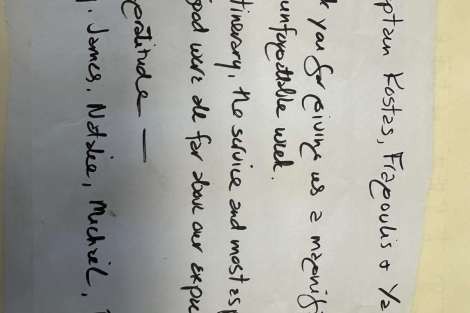 ptain Kostas, Fragoulis + Ya
k you for giving us a magnifi
unforgettable week.
itinerary, the service and most esp
food were all far above our expec
gratitude —
James, Natalie, Michael,